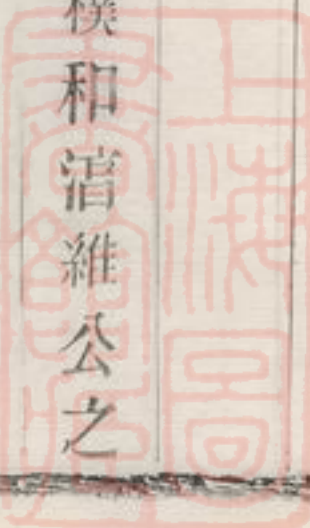 和湻維公之
上海圖
書館藏